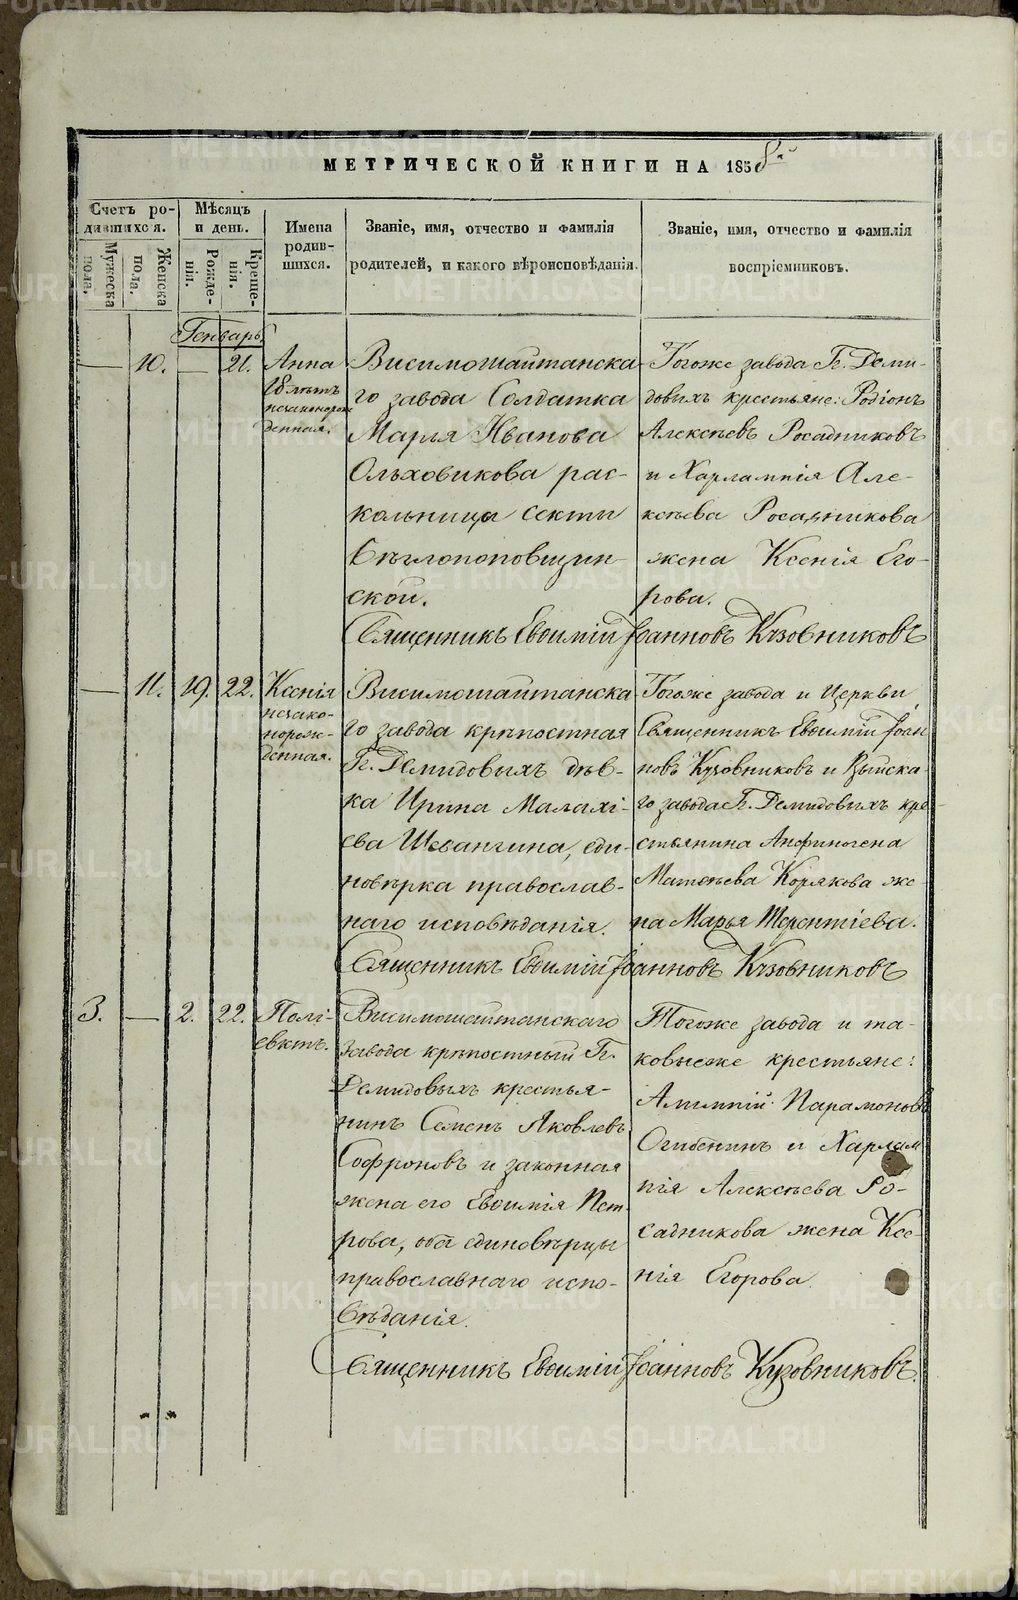 МЕТРИЧЕСКОЙ КНИГИ НА 1858й
Счетъ ро-
дившихся.
Мѣсяцъ
и день.
Имена
родив-
шихся.
Званіе, имя, отчество и фамилія
родителей, и какого вѣроисповѣданія.
Званіе, имя, отчество и фамилія
воспріемниковъ.
Мужеска
пола.
Женска
пола.
Рожде-
нія.
Креще-
нія.
Генварь
— 10. — 21.
Анна
незаконорож
денная.
Висимошайтанска
го завода Солдатка
Марья Иванова
Ольховикова рас-
кольница секты
Бѣглопоповщин-
ской.
Тогоже завода Гг. Деми-
довыхъ крестьяне: Родіонъ
Алексѣевъ Росадниковъ
и Харлампія Але-
ксѣева Росадникова
жена Ксенія Его-
рова.
Священникъ Евѳимій Іоанновъ Кузовниковъ
— 11. 19. 22.
Ксенія
незако-
норож-
денная.
Висимошайтанска
го завода крѣпостная
Гг. Демидовыхъ дѣв-
ка Ирина Малахі-
ева Шевангина, еди-
новѣрка православ-
наго исповѣданія.
Тогоже завода и Церкви
Священникъ Евѳимій Іоан
новъ Кузовниковъ и Выйска-
го завода Гг. Демидовыхъ кре-
стьянина Анфиногена
Матвѣева Корякова же-
на Марья Терентіева.
Священникъ Евѳимій Іоанновъ Кузовниковъ
3. — 2. 22.
Полі-
евктъ.
Висимошайтанскаго
завода крѣпостный Гг.
Демидовыхъ крестья-
нинъ Семенъ Яковлевъ
Софроновъ и законная
жена его Евѳимія Пет-
рова, оба единовѣрцы
православнаго испо-
вѣданія.
Тогоже завода и та-
ковыеже крестьяне:
Алимпій Парамоновъ
Огибенинъ и Харлам
пія Алексѣева Ро-
садникова жена Ксе-
нія Егорова.
Священникъ Евѳимій Іоанновъ Кузовниковъ.
METRIKI.GASO-URAL.RU